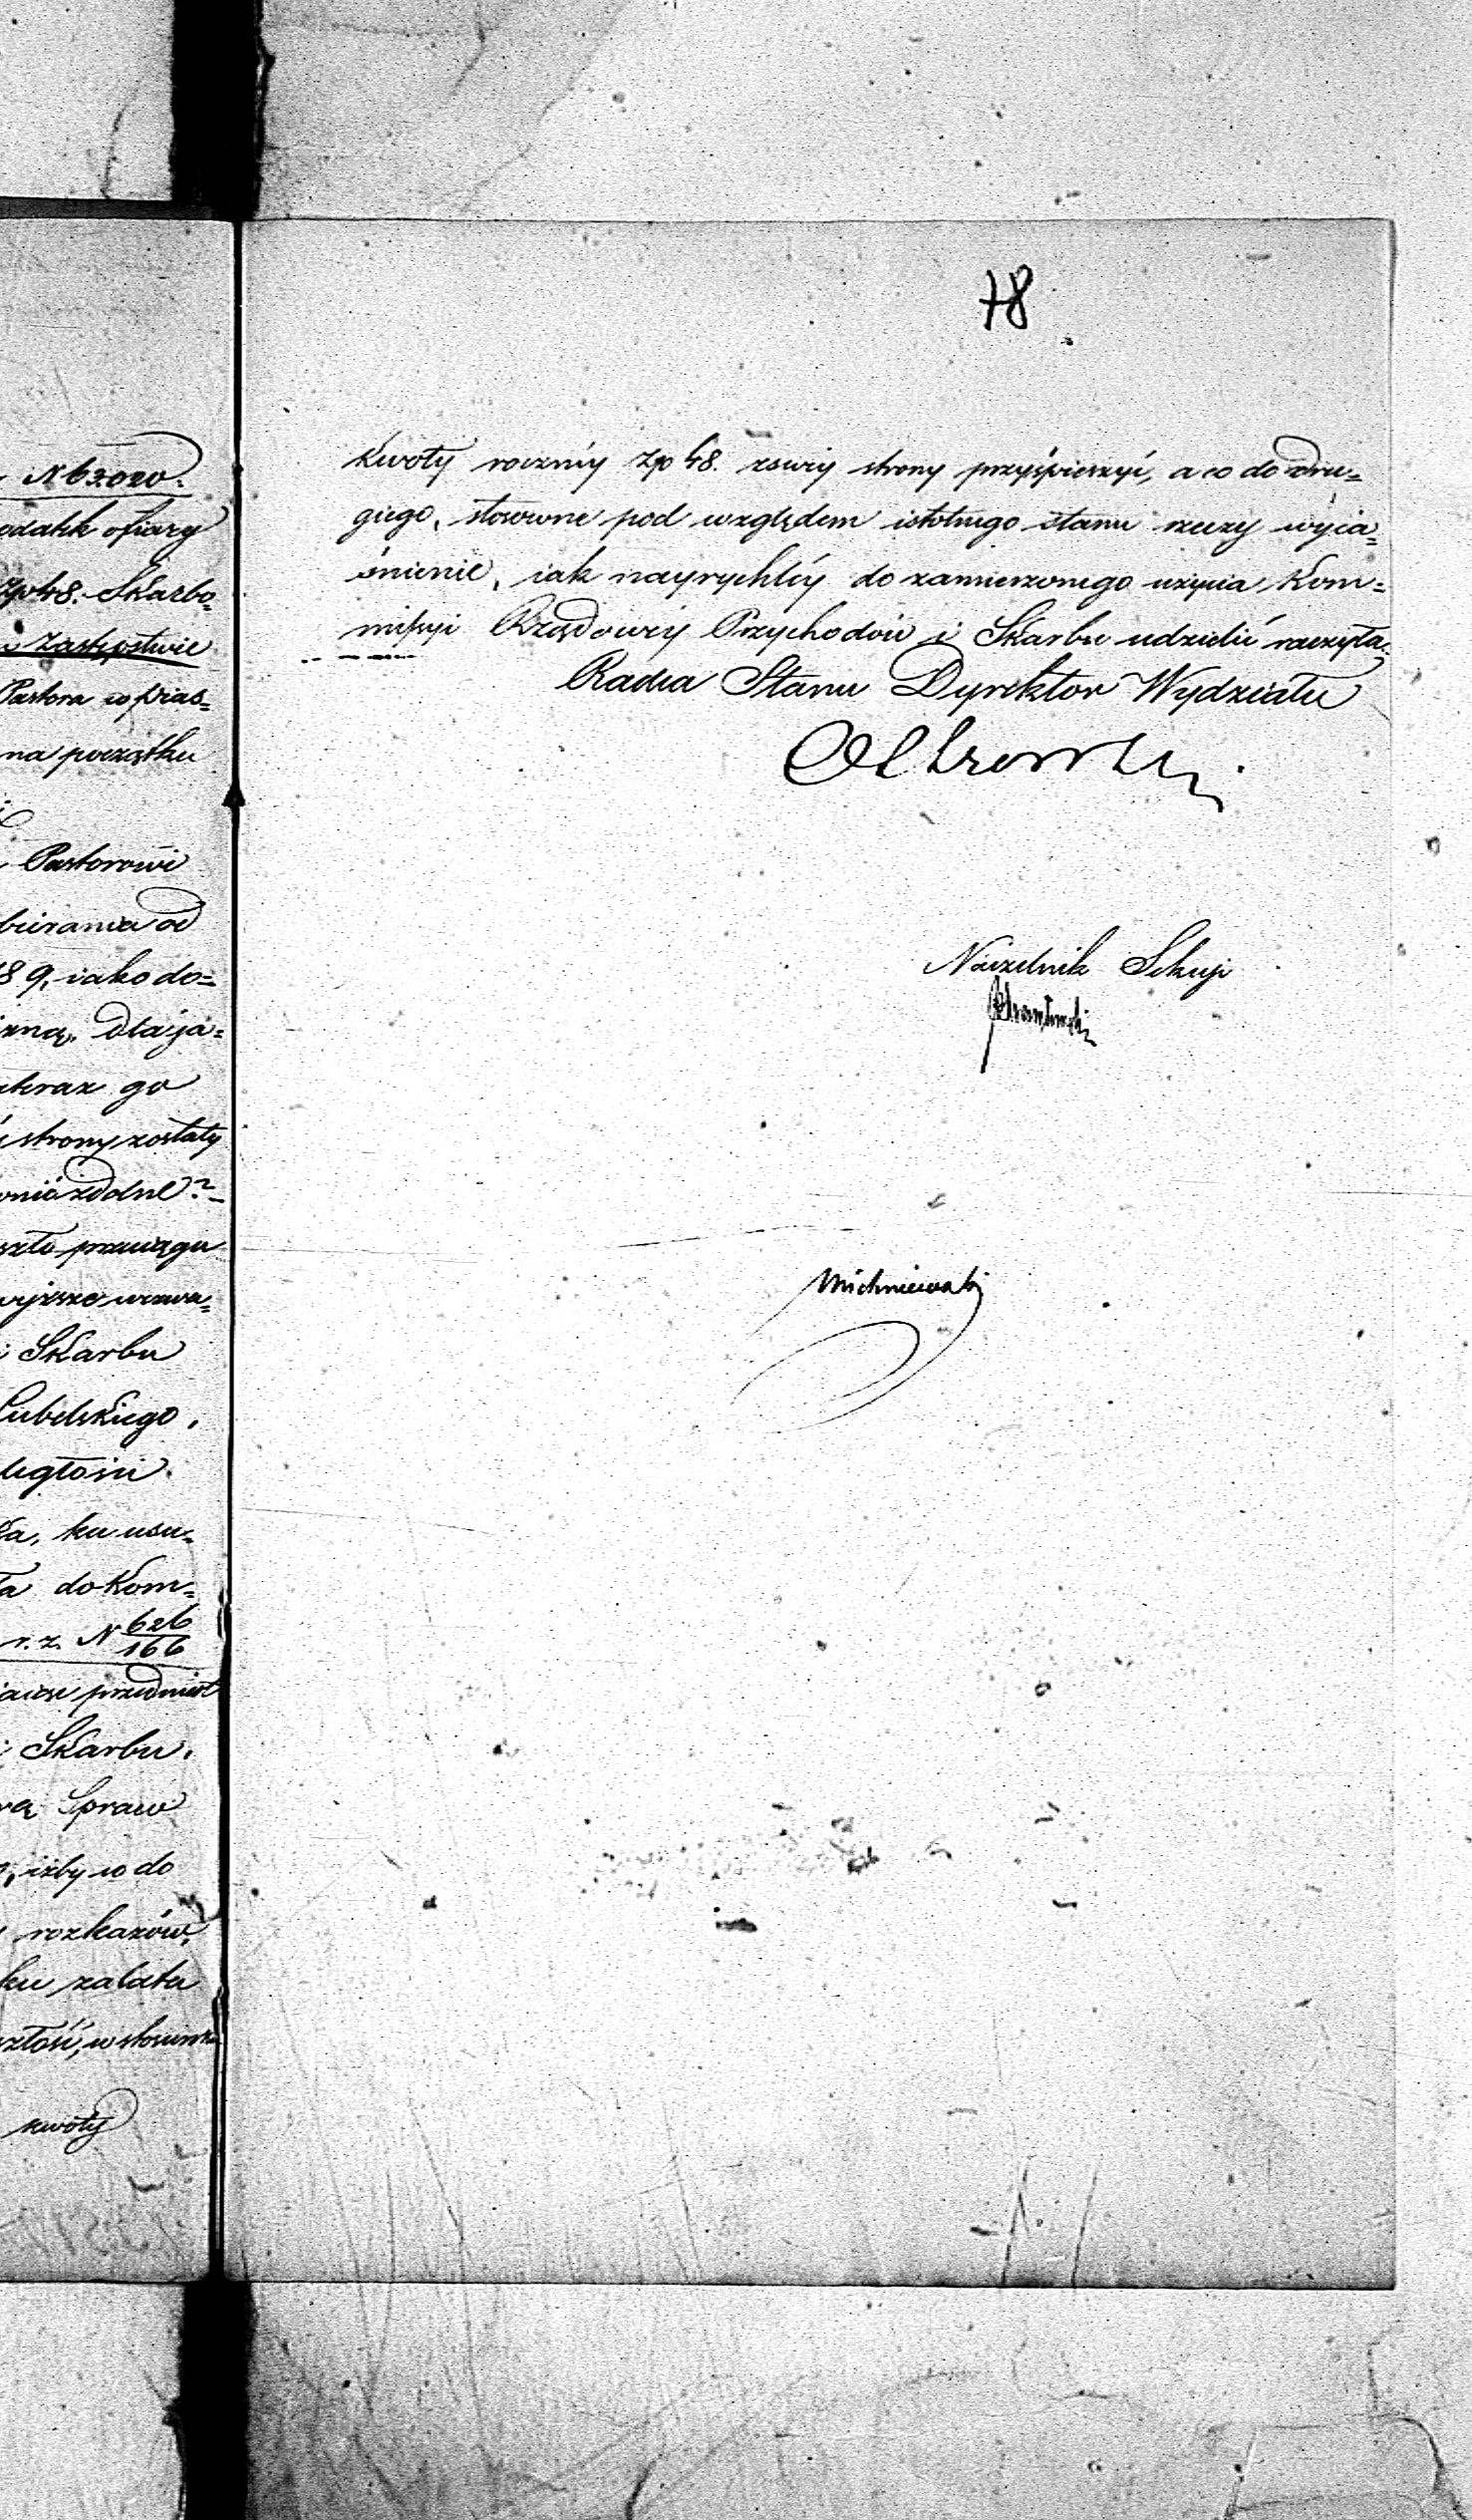 N 63.020.
odatk ofiary
Zp 48. Skarbo=
w Zastępstwie
Pastora w Pias=
na początku
Pastorowi
bierania od
189, iako do=
izną. dla ja=
teraz go
strony zostały
żadne?
szło przeciągu
wyższe wezwa=
i Skarbu
Lubelskiego,
ległości
ka, ku usu=
ła do Kom=
r. z. N 626/166
przedmiot
i Skarbu,
rą Spraw
iżby co do
rozkazów,
ku zalała
kwoty
78
kwoty roczniy Zp 48. zswéy strony przyśpieszyć, a co do dru=
giego, stosowne pod względem istotnego stanu rzeczy wyia=
śnienie, iak nayrychléy do zamierzonego użycia Kom=
missyi Rządowéy Przychodów i Skarbu udzielić raczyła.
Radca Stanu Dyrektor Wydziału
Naczelnik Sekcyi
Michniewski